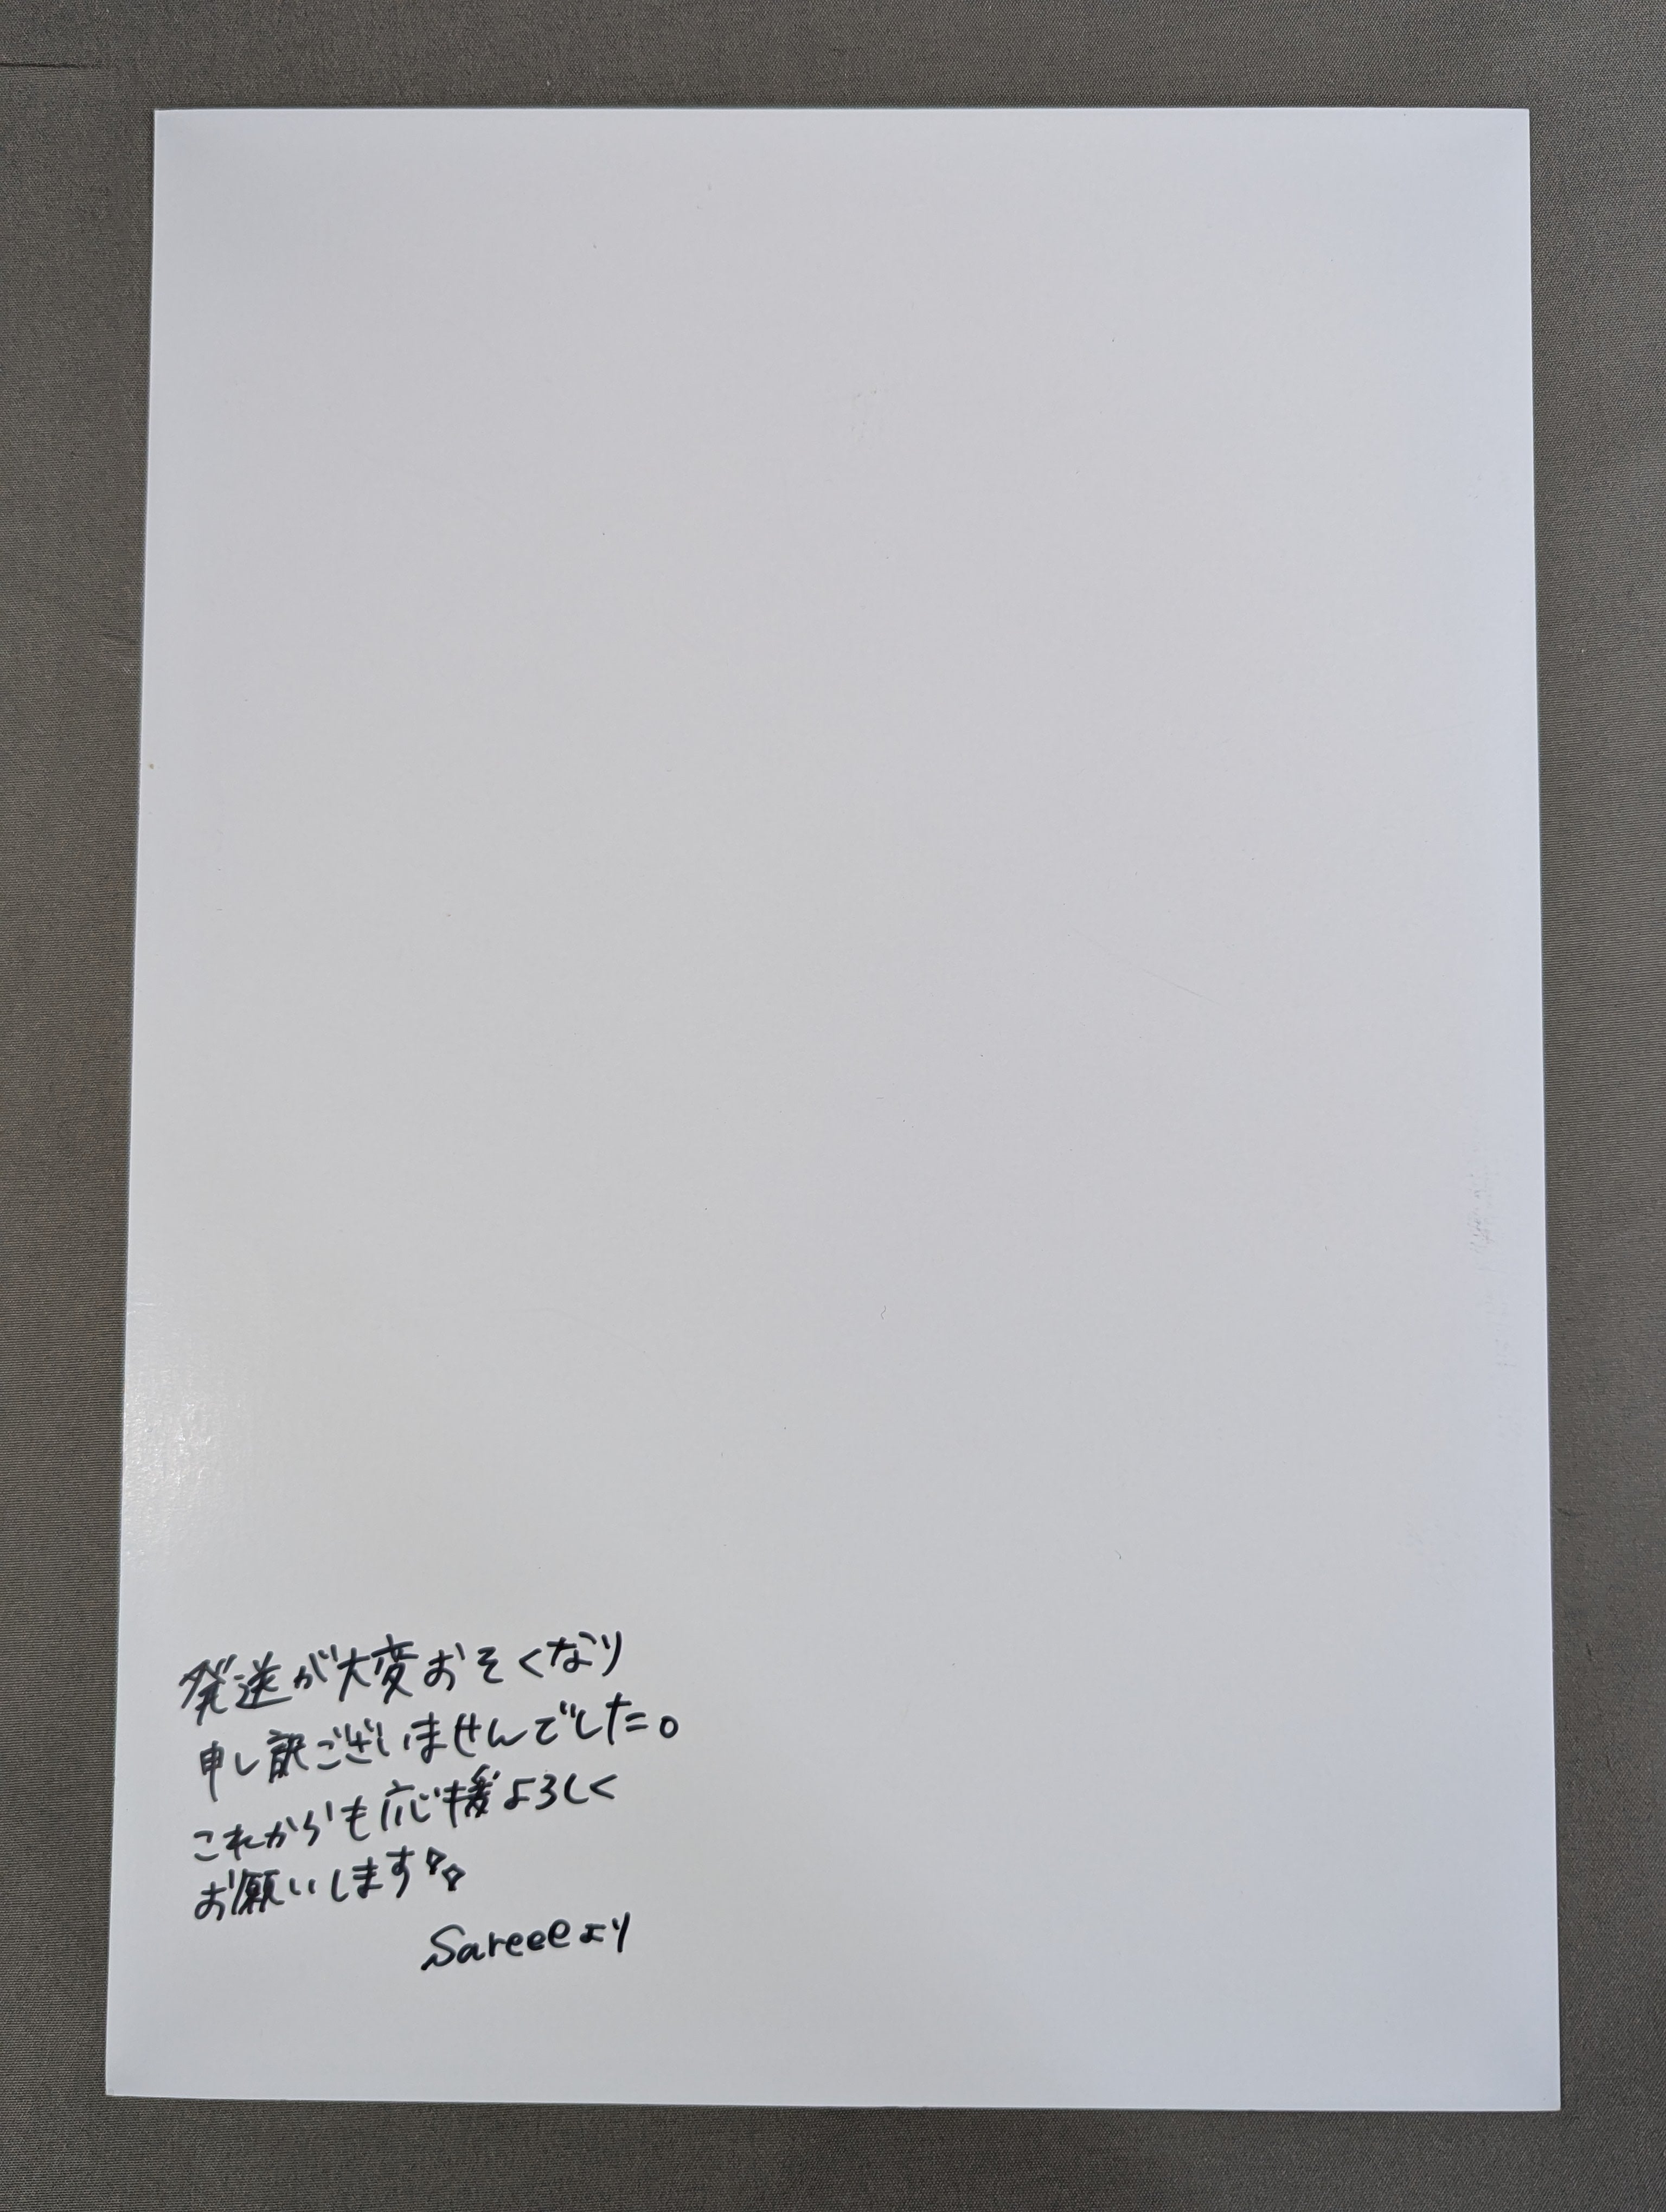 発送が大変おそくなり
申し訳ございませんでした。
これからも応援よろしく
お願いします
Sareeeより